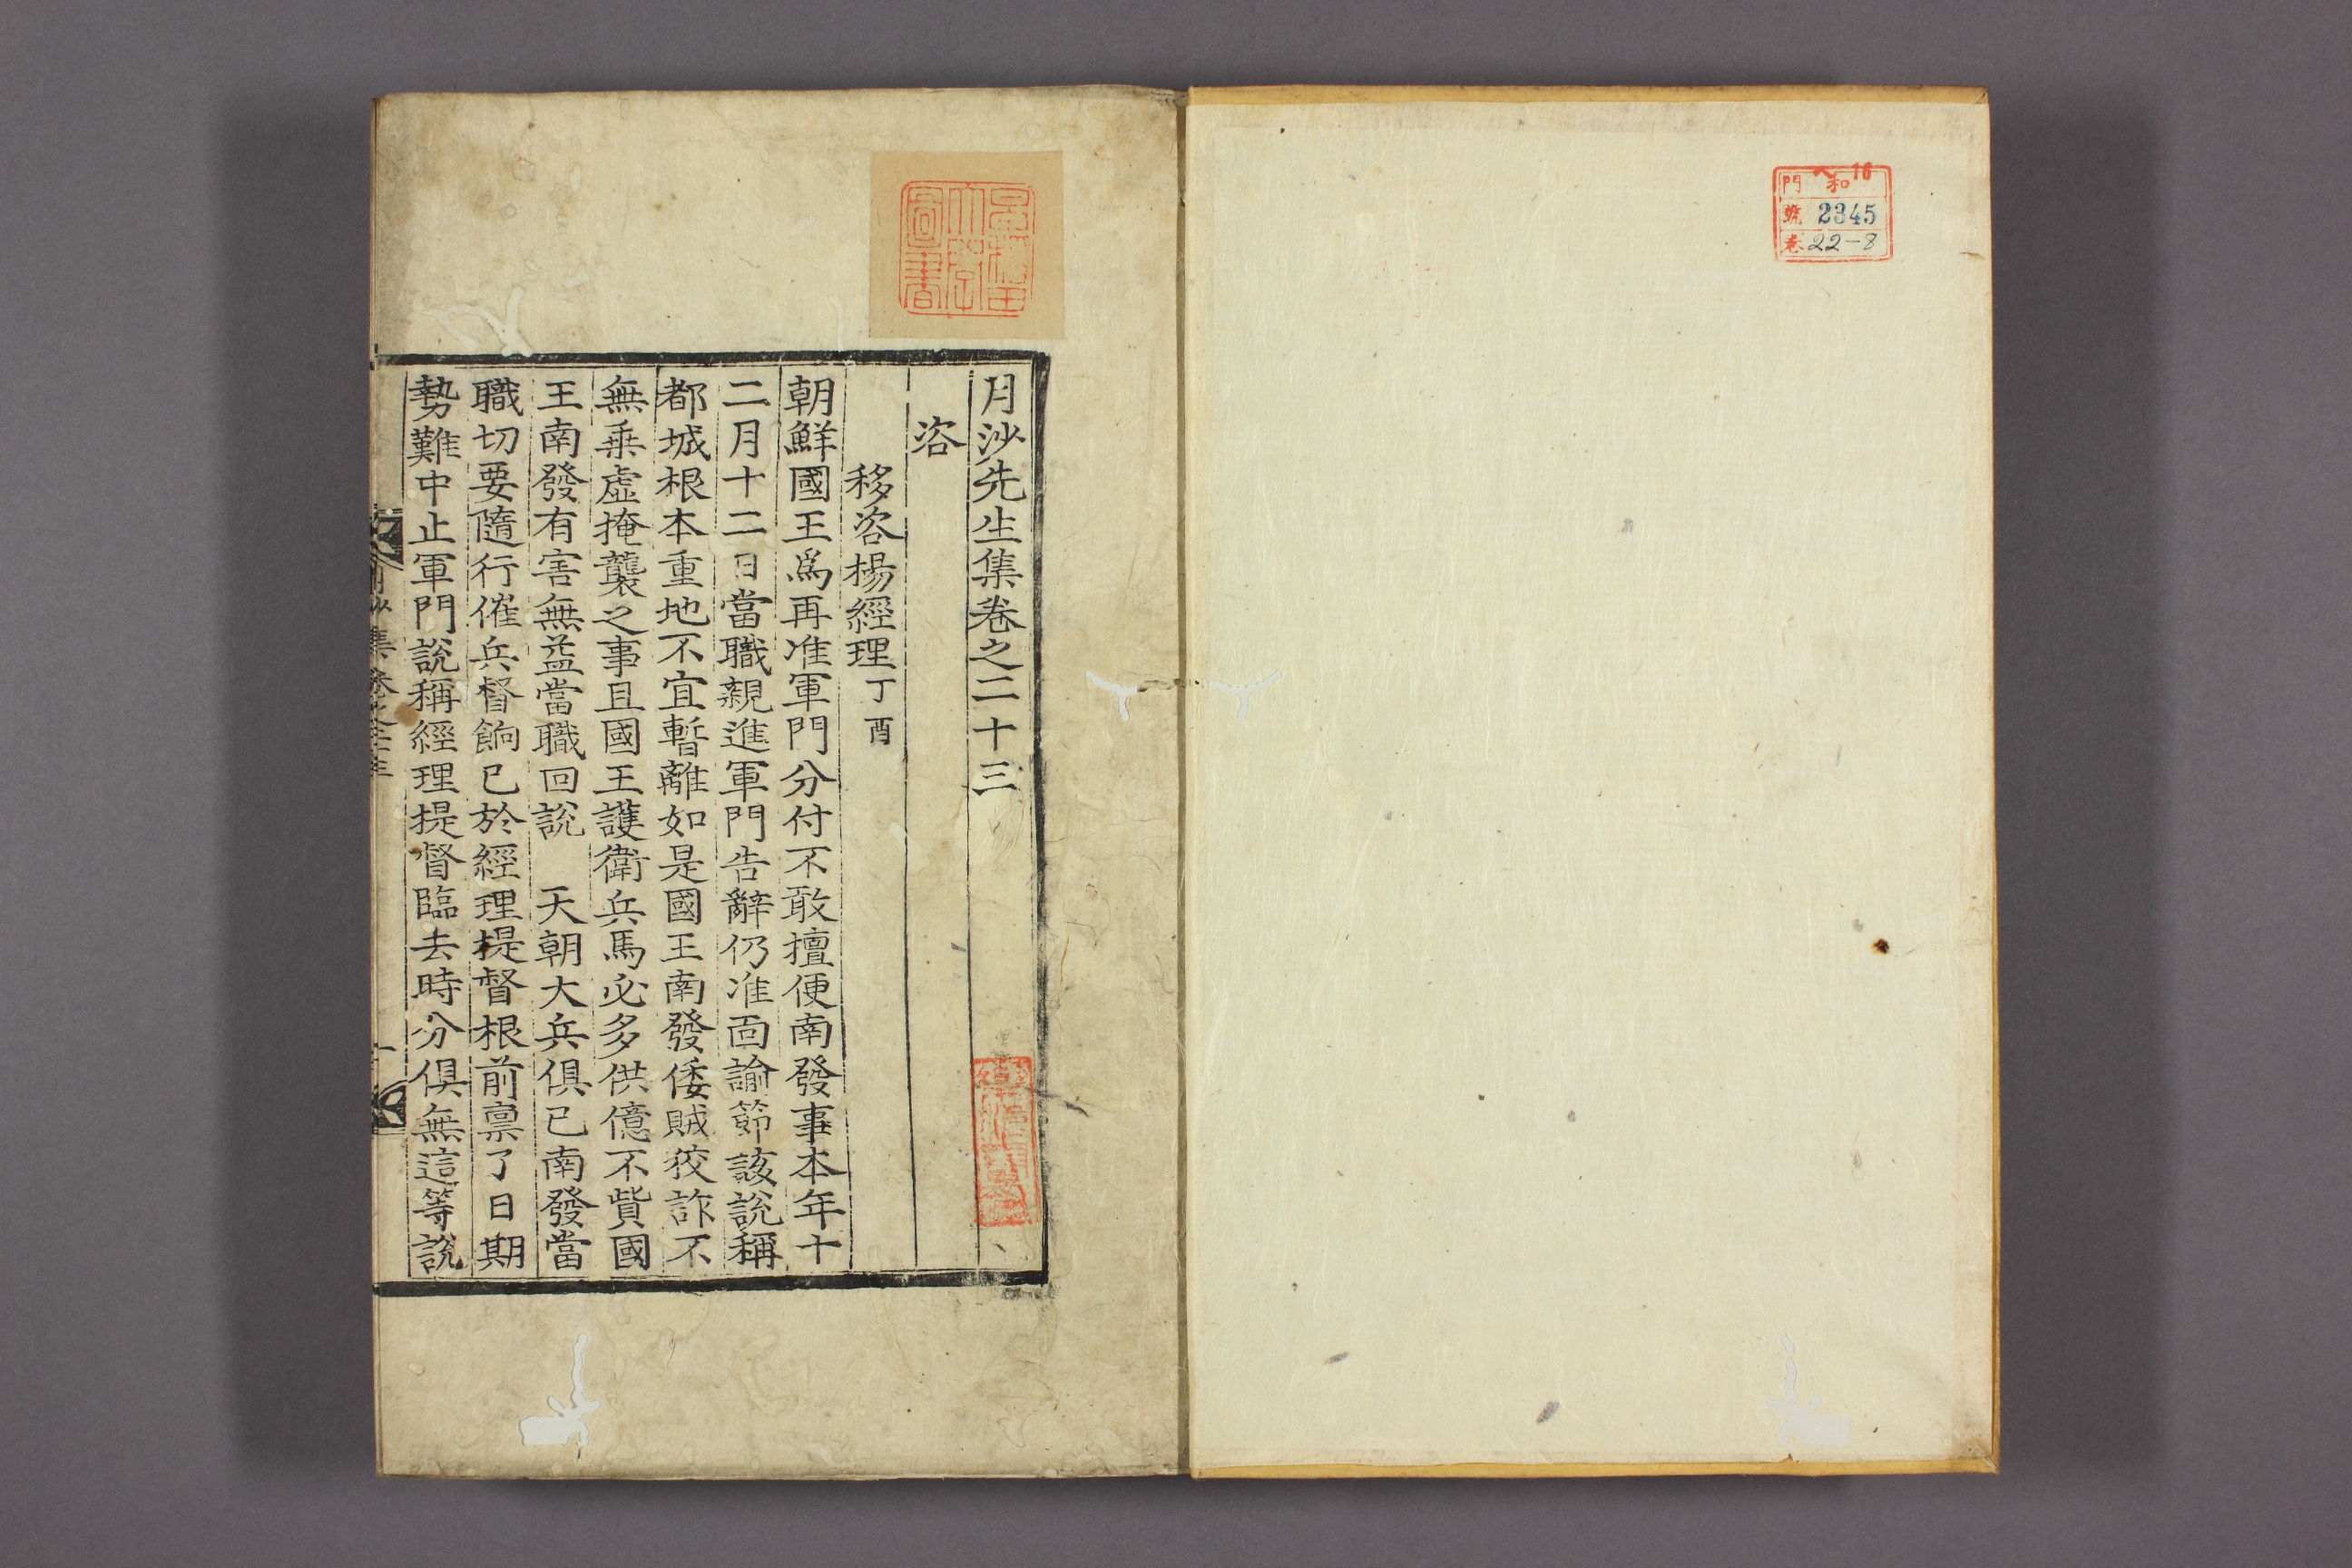 門 和 16
號 2345
巻 22-8
早稲田大学図書
月沙先生集卷之二十三
咨
移咨楊經理丁酉
朝鮮國王爲再准軍門分付不敢擅便南發事本年十
二月十二日當職親進軍門告辭仍准面諭節該說稱
都城根本重地不宜暫離如是國王南發倭賊狡詐不
無乗虛掩襲之事且國王護衛兵馬必多供億不貲國
王南發有害無益當職回說 天朝大兵俱已南發當
職切要隨行催兵督餉已於經理提督根前禀了日期
勢難中止軍門說稱經理提督臨去時分俱無這等說
月沙集卷之二十三 一